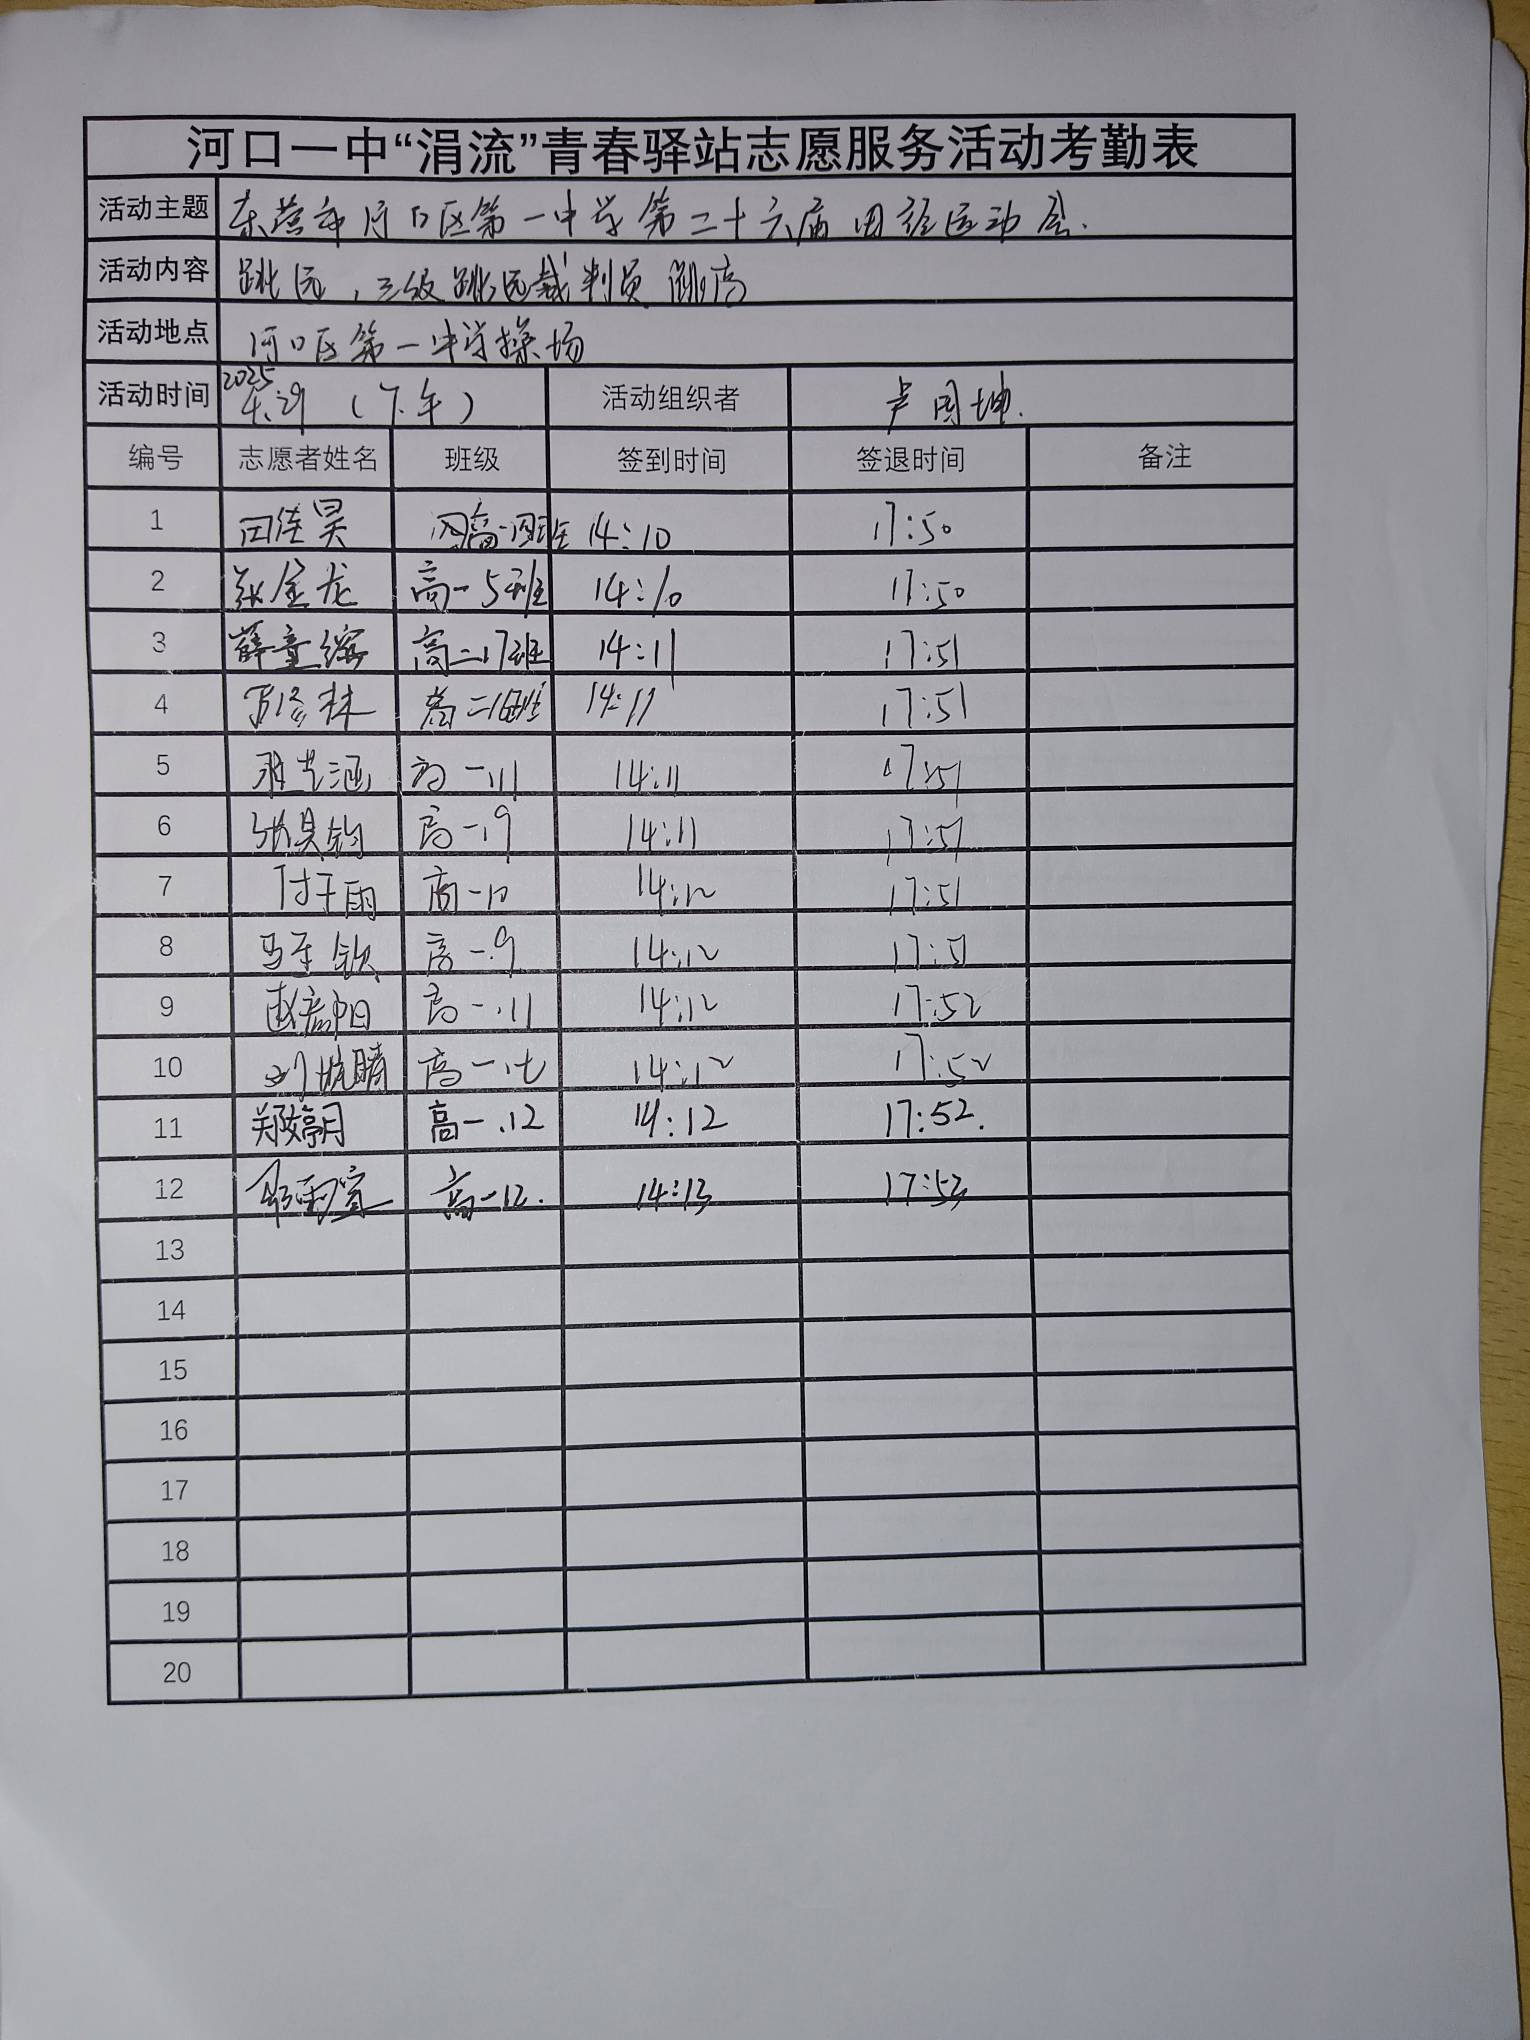 河口一中“涓流”青春驿站志愿服务活动考勤表
活动主题 东营市河口区第一中学第二十六届田径运动会.
活动内容 跳远，三级跳远裁判员 跳高
活动地点 河口区第一中学操场
活动时间 2025 4.29 （下午） 活动组织者
编号 志愿者姓名 班级 签到时间 签退时间 备注
1 田佳昊 高一四班 14:10 17:50
2 张金龙 高一5班 14:10 17:50
3 薛童缤 高二17班 14:11 17:51
4 高二 14:11 17:51
5 高一.11 14:11 17:51
6 张具钧 高一.9 14:11 17:51
7 付于雨 高一10 14:12 17:51
8 高一.9 14:12 17:51
9 高一.11 14:12 17:52
10 高一.七 14:12 17:52
11 郑婷月 高一.12 14:12 17:52.
12 高一12. 14:13 17:53
13
14
15
16
17
18
19
20